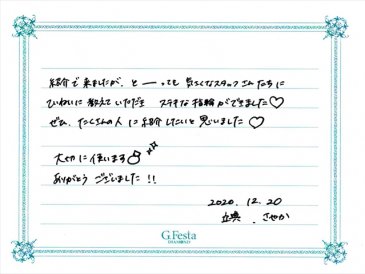 紹介で来ましたが、と──っても 気さくなスタッフさんたちに
ていねいに教えていただき ステキな指輪ができました♡
ぜひ、たくさんの人に紹介したいと思いました♡
大切に使います
ありがとう ございました!!
2020. 12. 20
さやか
G.Festa
DIAMOND